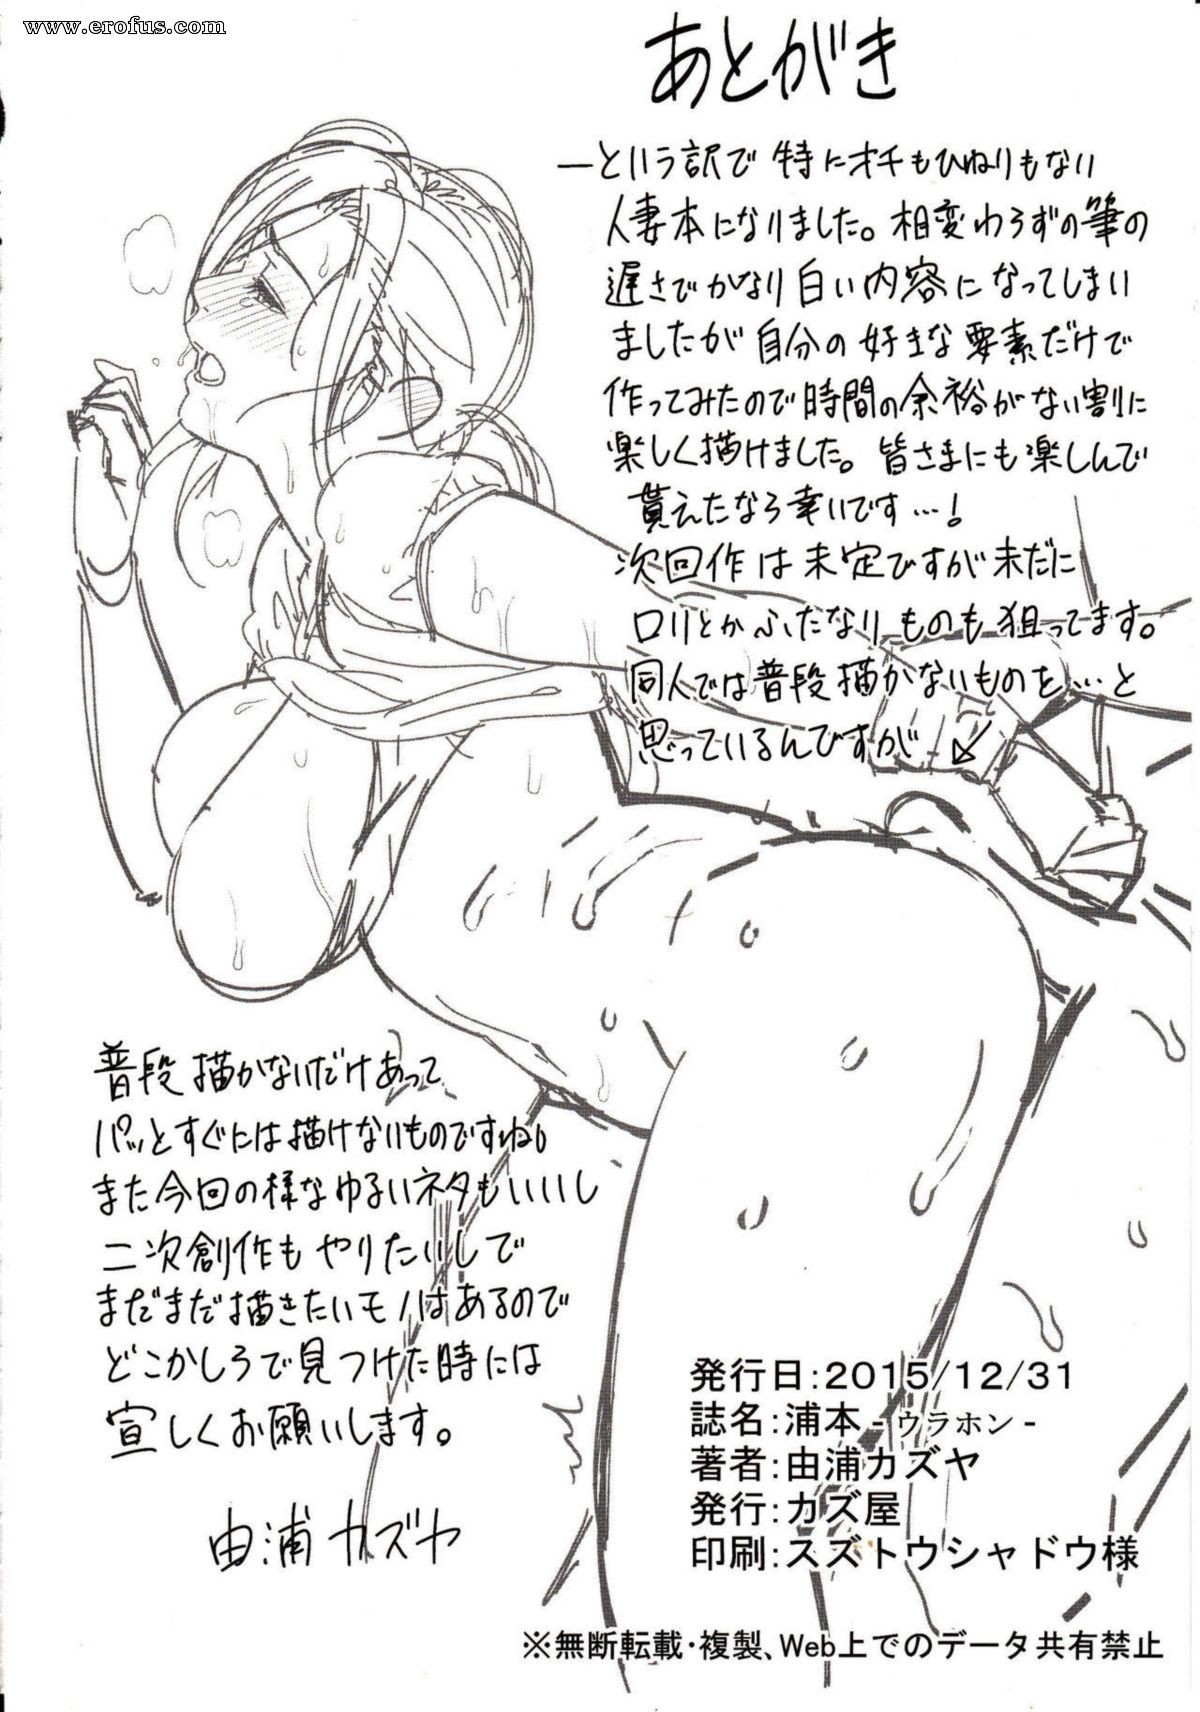 www.erofus.com
あとがき
ーという訳で特にオチもひねりもない
人妻本になりました。相変わらずの筆の
遅さでかなり白い内容になってしまい
ましたが自分の好きな要素だけで
作ってみたので時間の余裕がない割に
楽しく描けました。皆さまにも楽しんで
貰えたなら幸いです…!
次回作は未定ですが未だに
ロリとかふたなりものも狙ってます。
同人では普段描かないものを…と
思っているんですが ↙
普段描かないだけあって
パッとすぐには描けないものですね。
また今回の様なゆるいネタもいいし
二次創作もやりたいしで
まだまだ描きたいモノはあるので
どこかしらで見つけた時には
宜しくお願いします。
由浦カズヤ
発行日:2015/12/31
誌名:浦本 - ウラホン -
著者:由浦カズヤ
発行:カズ屋
印刷:スズトウシャドウ様
※無断転載・複製、Web上でのデータ共有禁止